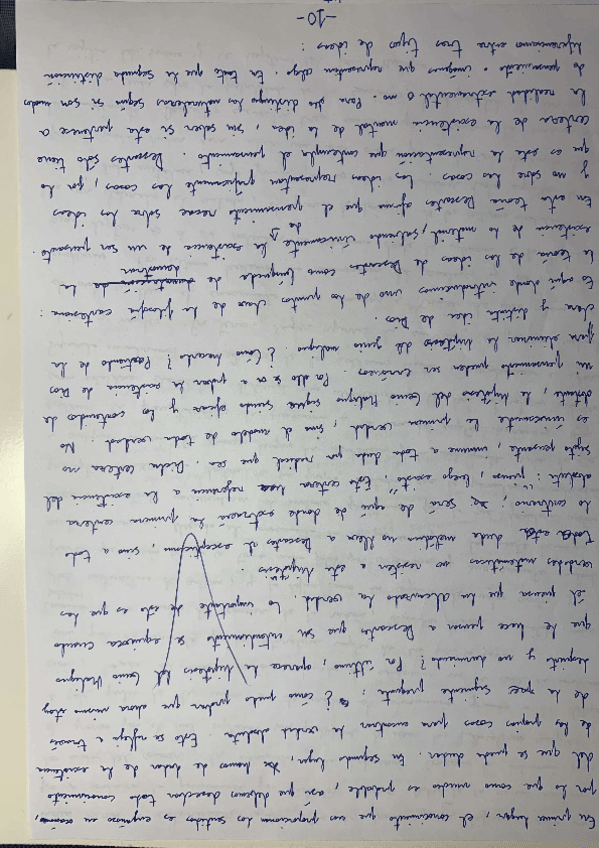 En primer lugar, el conocimiento que nos proporcionan los sentidos es engañoso en ocasiones,
por lo que como mucho es probable, así que debemos desechar todo conocimiento
del que se pueda dudar. En segundo lugar, hemos de dudar de la existencia
de las propias cosas para encontrar la verdad absoluta. Esto se refleja a través
de la siguiente pregunta: ¿cómo puedo probar que ahora mismo estoy
despierto y no durmiendo? Por último, aparece la hipótesis del Genio Maligno
que le hace pensar a Descartes que su entendimiento se equivoca cuando
él piensa que ha alcanzado la verdad. Lo importante de esto es que las
verdades matemáticas no resisten a esta hipótesis.
esta duda metódica no lleva a Descartes al escepticismo, sino, a todo
lo contrario; será de aquí de donde extraerá la primera certeza
absoluta: "pienso, luego existo". Esta certeza hace referencia a la existencia del
sujeto pensante, inmune a toda duda por radical que sea. Dicha certeza no
es únicamente la primera verdad, sino el modelo de toda verdad. No
obstante, la hipótesis del Genio Maligno sigue siendo eficaz y los contenidos de
un pensamiento pueden ser erróneos. Por ello se va a probar la existencia de Dios
para eliminar la hipótesis del genio maligno. ¿Cómo hacerlo? Partiendo de la
clara y distinta idea de Dios.
Es aquí donde introducimos uno de los puntos clave de la filosofía cartesiana:
la teoría de las ideas. Descartes como demostrar la
existencia de lo material, sabiendo únicamente de la existencia de un ser pensante.
En esta teoría Descartes afirma que el pensamiento recae sobre las ideas
y no sobre las cosas. Las ideas representan gráficamente las cosas, por lo
que es esta la representación que contempla el pensamiento. Descartes sólo tiene
certeza de la existencia mental de la idea, sin saber si esta pertenece a
la realidad extramental o no. Para ello distingue las naturalezas según si son modos
de pensamiento o imágenes que representan algo. En base a la segunda distinción
diferenciamos entre tres tipos de ideas:
-10-